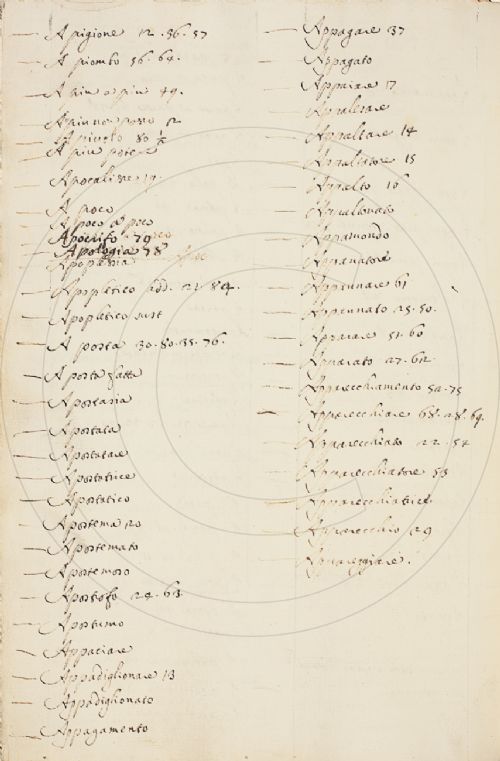 A pigione 12. 36. 57
A piombo 56. 64.
A più o più 49.
A più non posso 12
A piccolo 80 ½
A più potere
Apocalisse 17.
A poco
A poco a poco
Apocrifo 79
Apologia 78
Apoplesia
Apopletico add. 21. 84.
Apopletico sust
A posta 30. 80. 35. 76.
A posta fatta
Apostasia
Apostata
Apostatare
Apostatrice
Apostatico
Apostema 20
Apostemato
Apostemoso
Apostolo 24. 63.
Appaciare
Appadiglionare 13
Appadiglionato
Appagamento
Appagare 37
Appagato
Appaiare 17
Appaltare 14
Appaltatore 15
Appalto 16
Appannare 61
Appannato 25. 50.
Apparare 51. 60
Apparato 27. 62.
Apparecchiamento 52. 75
Apparecchiare 68. 28. 69.
Apparecchiato 22. 54
Apparecchiatore 53
Apparecchiatrice
Apparecchio 29
Appareggiare.